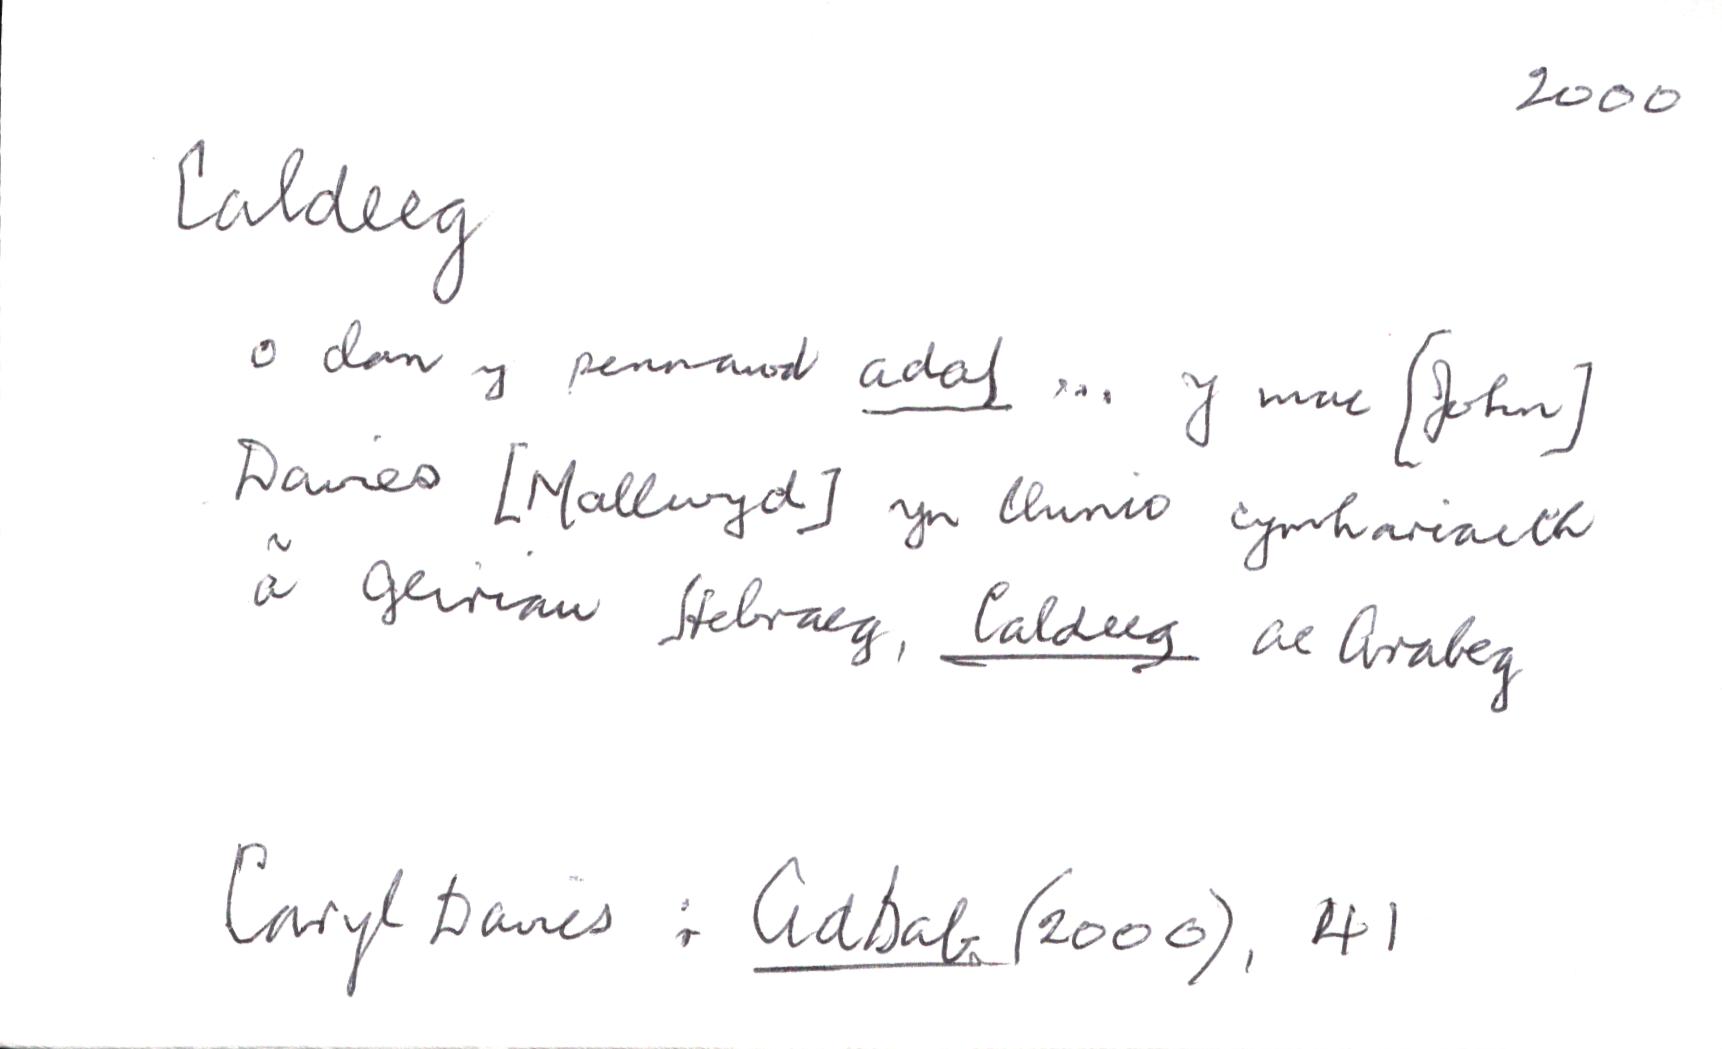 2000
Caldeeg
o dan y pennawd adaf ... y mae [John]
Davies [Mallwyd] yn llunio cymhariaeth
â geiriau Hebraeg, Caldeeg ac Arabeg
Caryl Davies : AdBab. (2000), 41